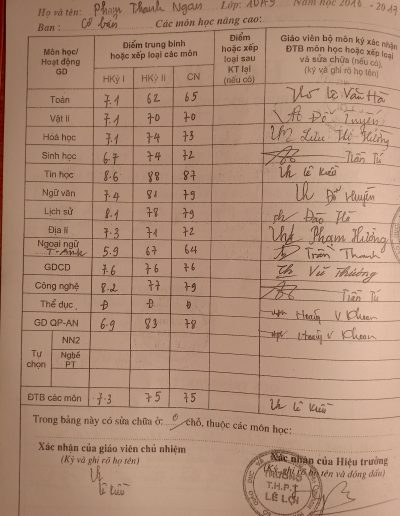 Họ và tên: Phạm Thanh Ngân Lớp: 10A9 Năm học 2016 - 2017
Ban: Cơ bản Các môn học nâng cao:
Môn học/ Hoạt động GD | Điểm trung bình hoặc xếp loại các môn | Điểm hoặc xếp loại sau KT lại (nếu có) | Giáo viên bộ môn ký xác nhận ĐTB môn học hoặc xếp loại và sửa chữa (nếu có), (ký và ghi rõ họ tên)
HKỳ I HKỳ II CN
Toán 7.1 62 65 Lê Văn Hà
Vật lí 7.1 70 70 Đỗ Tuyên
Hoá học 7.1 74 73 Lưu Thị Hường
Sinh học 6.7 74 72 Trần Tú
Tin học 8.6 88 87 Lê Kiều
Ngữ văn 7.4 81 79 Đỗ Huyền
Lịch sử 8.1 78 79 Đào Hà
Địa lí 7.3 71 72 Phạm Hường
Ngoại ngữ T.Anh 5.9 67 64 Trần Thanh
GDCD 7.6 76 76 Vũ Thương
Công nghệ 8.2 77 79 Trần Tú
Thể dục Đ Đ Đ Hoàng V Khoan
GD QP-AN 6.9 83 78 Hoàng V Khoan
Tự chọn NN2
Nghề PT
ĐTB các môn 7.3 75 75 Lê Kiều
Trong bảng này có sửa chữa ở: 0 chỗ, thuộc các môn học:
Xác nhận của giáo viên chủ nhiệm Xác nhận của Hiệu trưởng
(Ký và ghi rõ họ tên) (Ký, ghi rõ họ tên và đóng dấu)
Lê Kiều
TRƯỜNG
T.H.P.T
LÊ LỢI